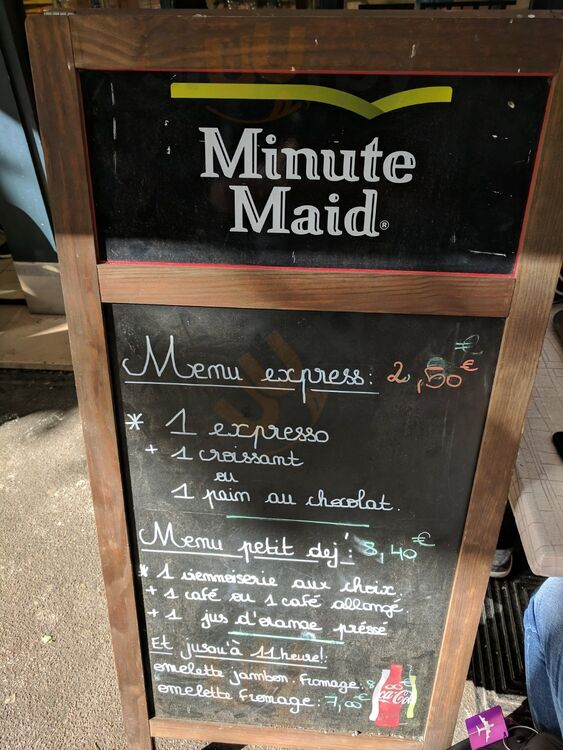 Minute
Maid®
Menu express: 2,50€
* 1 expresso
+ 1 croissant
ou
1 pain au chocolat.
Menu petit dej': 8,40€
* 1 viennoiserie aux choix.
+ 1 café ou 1 café allongé.
+ 1 jus d'orange préssé
Et jusqu'à 11heure!:
omelette jambon. fromage: 8,00€
omelette fromage: 7,00€
Coca-Cola